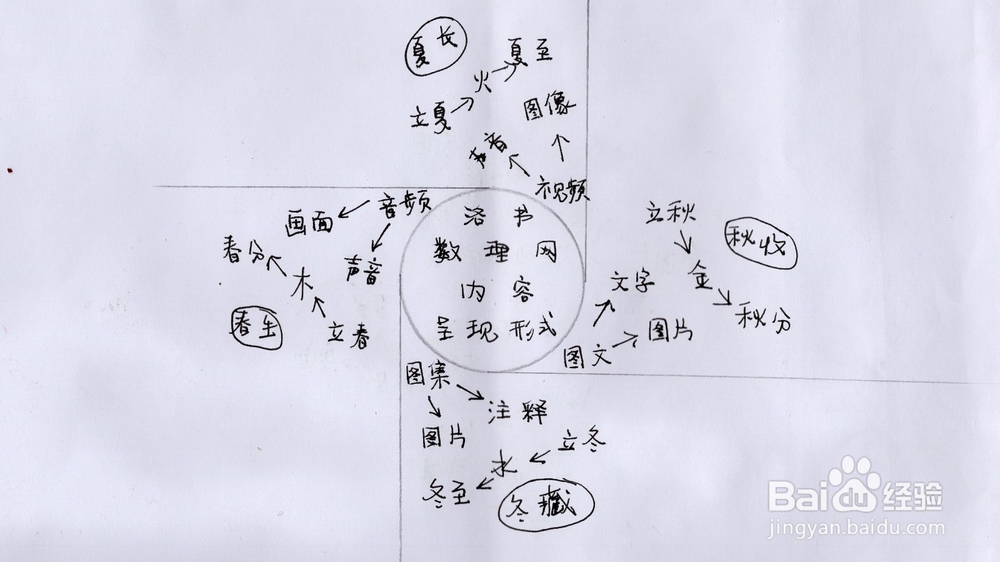 夏长
夏至
火
立夏
图像
声音
视频
音频
画面
声音
春分
木
立春
春生
洛书
数理网
内容
呈现形式
立秋
秋收
金
秋分
文字
图片
图文
图集
注释
图片
立冬
水
冬至
冬藏
Baidu经验
jingyan.baidu.com